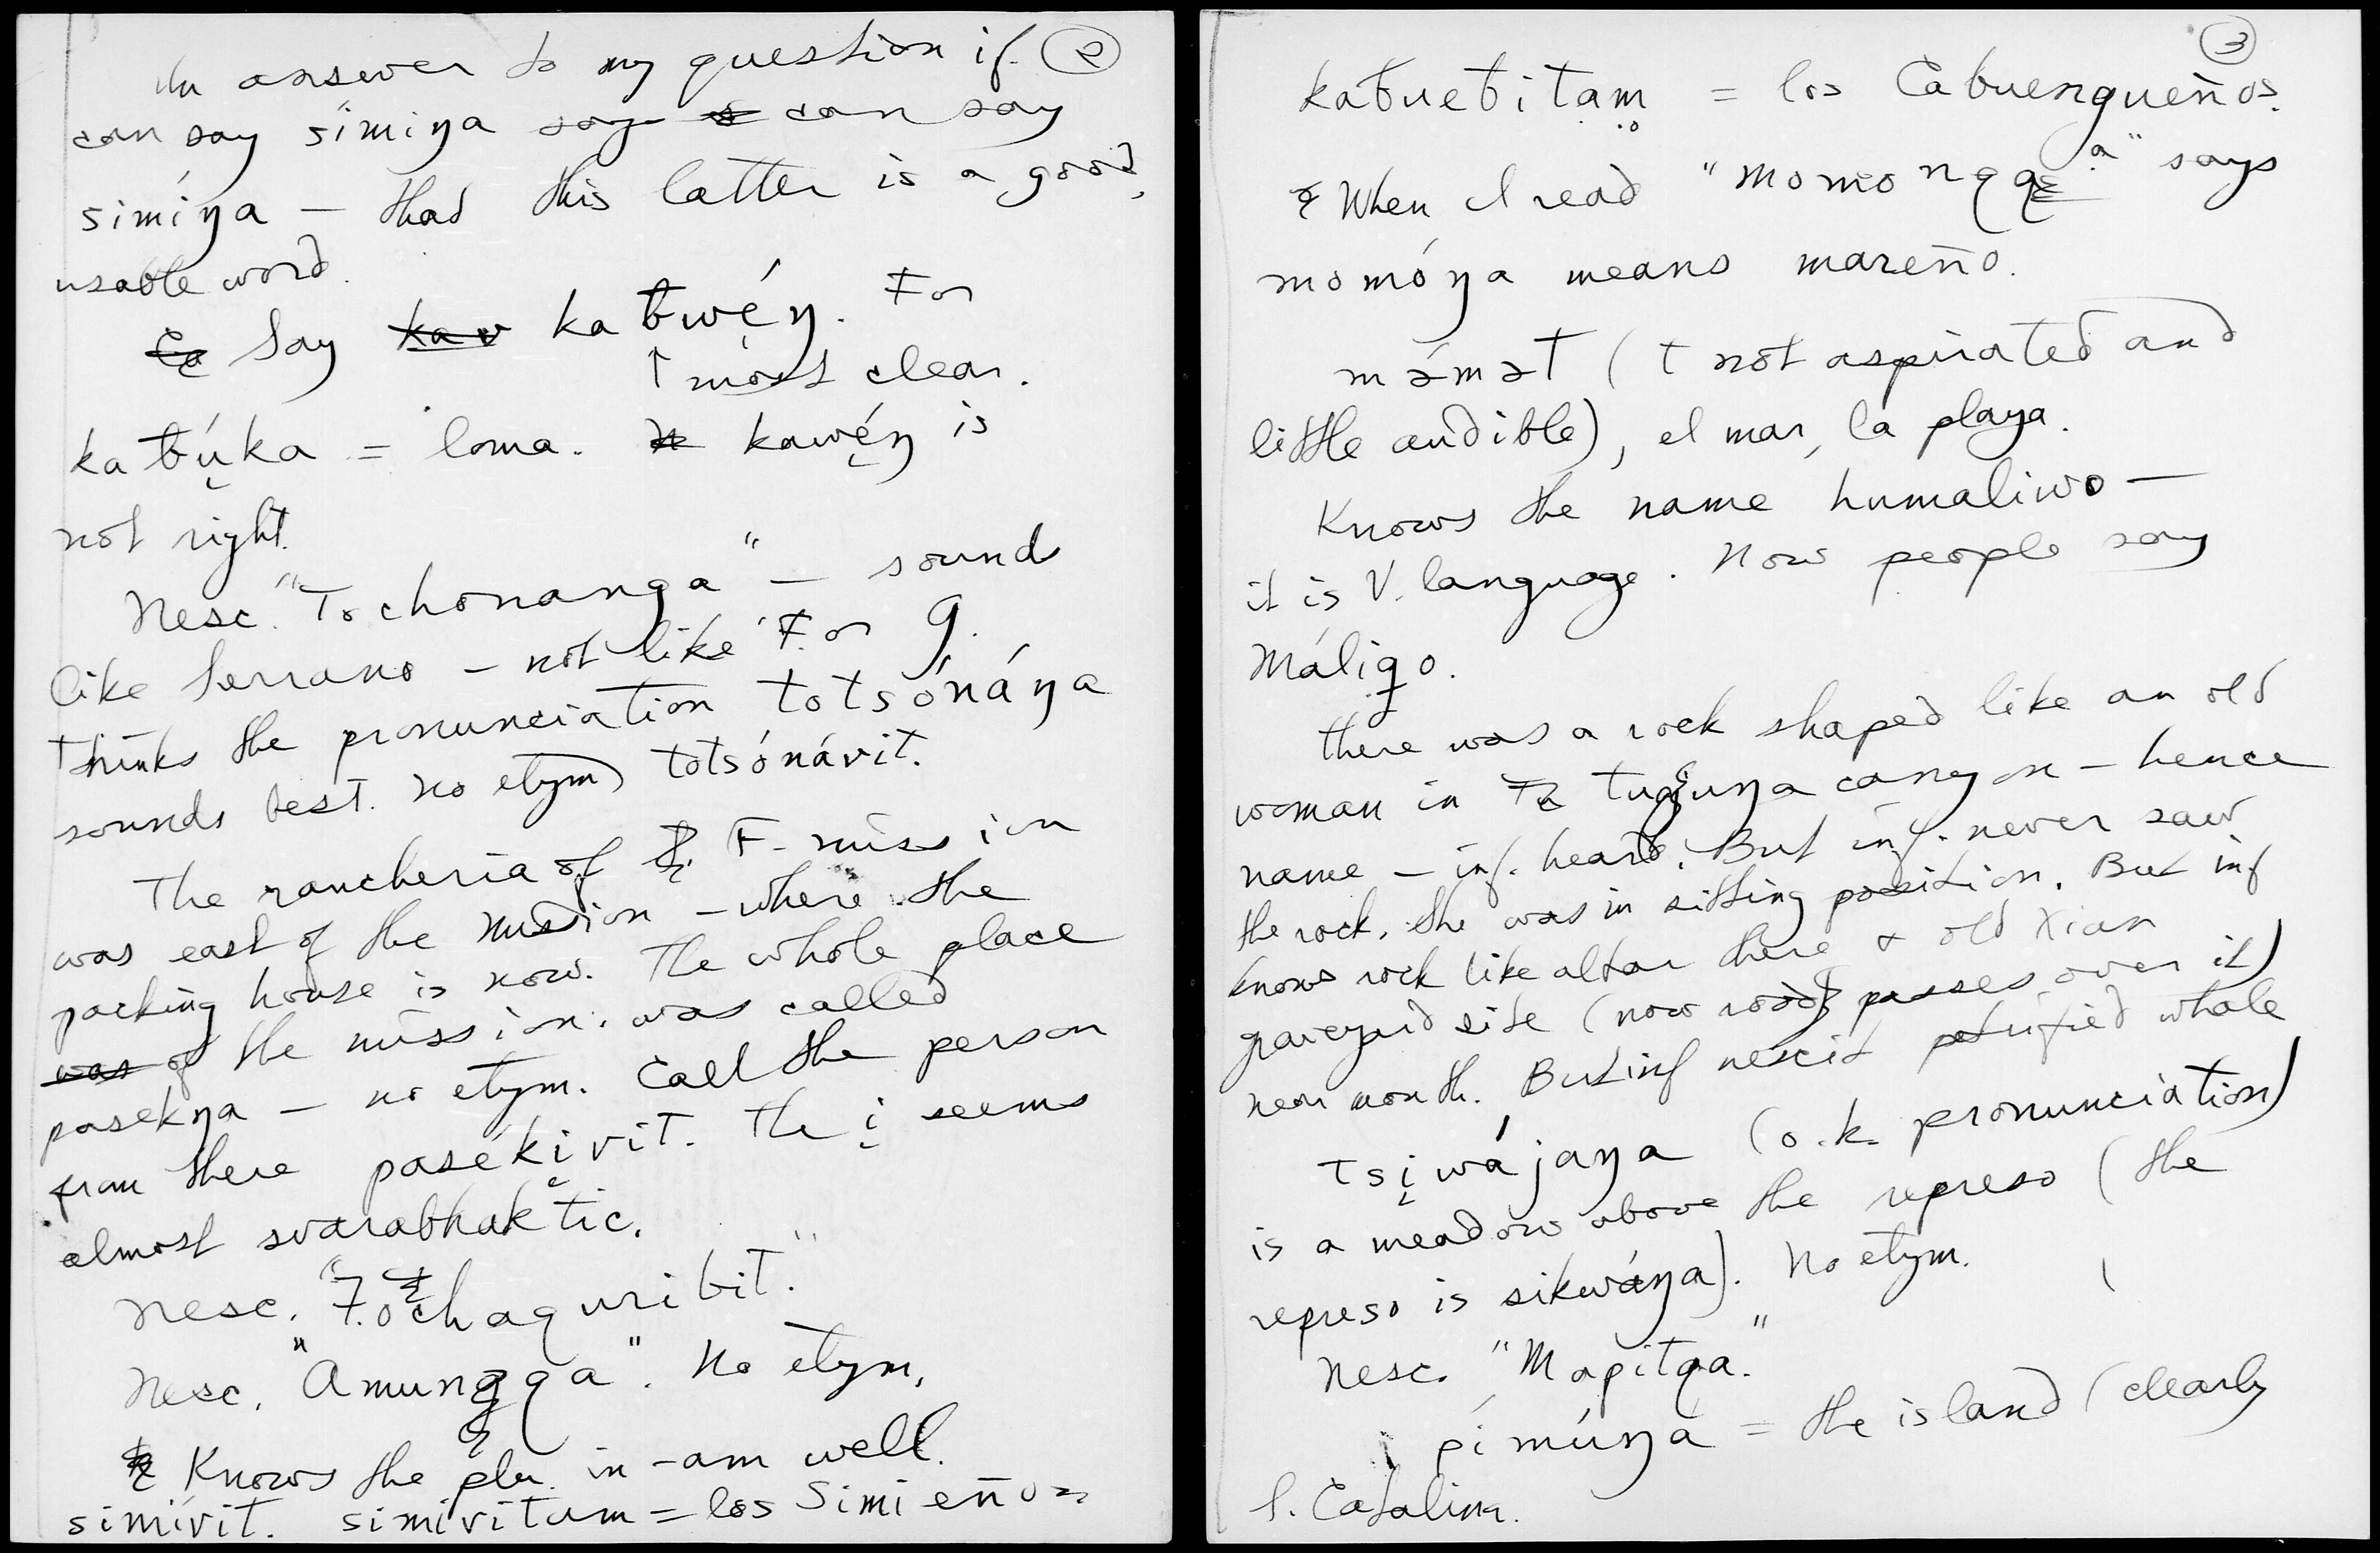 In answer to my question if. ②
can say símiŋa say s can say
simíŋa — that this latter is a good,
usable word.
Ca Say kav kaƀwé̜ŋ. For
↑ most clear.
kaƀú̜ka = loma. kawé̜ŋ is
not right.
Nesc. "Tochonanga" — sound
like Serrano — not like For g.
Thinks the pronunciation totsónáŋa
sounds best. No etym) totsónávit.
The rancheria of F. mission
was east of the mission — where the
packing house is now. The whole place
was of the mission was called
pasekŋa — no etym. Call the person
from there pasékị̜vit. The i̜ seems
almost svarabhaktic.
Nesc. "Tochaquribit."
Nesc. "Amungga". No etym.
Knows the plu. in -am well.
simívit. simívitam = los Simieños
③
kaƀueƀitam = los Cabuengueños.
When I read "momongga" says
momóŋa means mareño.
mə́mət (t not aspirated and
little audible), el mar, la playa.
Knows the name humaliwo —
it is V. language. Now people say
Máligo.
There was a rock shaped like an old
woman in Tu tuxuŋa canyon — hence
name — inf. heard. But inf. never saw
the rock. She was in sitting position. But inf
knows rock like altar there & old Xian
graveyard site (now road passes over it)
near mouth. But inf nescit petrified whale
tsi̜wá'jaŋa (o.k. pronunciation)
is a meadow above the represo (the
represo is sikwáŋa). No etym.
Nesc. "Mapitqa."
pímúŋá = the island (clearly
S. Catalina.